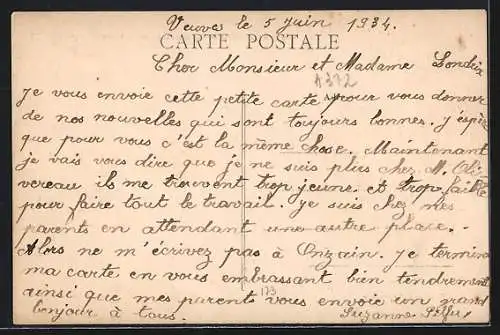 Veuves le 5 juin 1934.
CARTE POSTALE
Cher Monsieur et Madame Londrix
Je vous envoie cette petite carte pour vous donner
de nos nouvelles qui sont toujours bonnes. J'éspère
que pour vous c'est la même chose. Maintenant
je vais vous dire que je ne suis plus chez M. Oli
vereau il me trouvent trop jeune. et trop faible
pour faire tout le travail. Je suis chez mes
parents en attendant une autre place.
Alors ne m'écrivez pas à Onzain. Je termine
ma carte en vous embrassant bien tendrement
173
ainsi que mes parents vous envoie un grand
bonjour à tous.
Suzanne